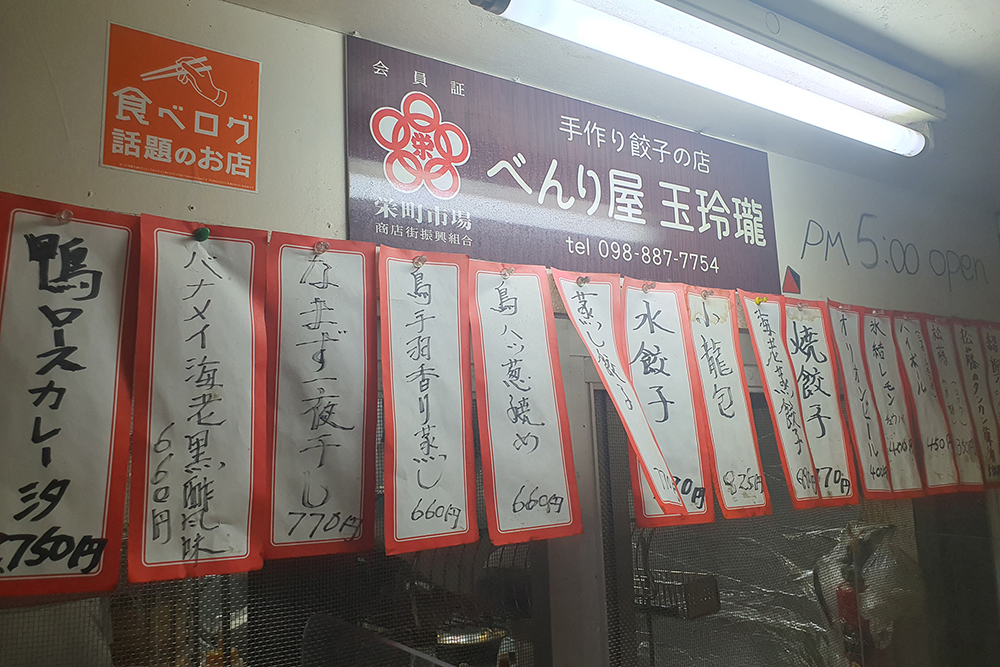 食べログ
話題のお店
会員証
栄
栄町市場
商店街振興組合
手作り餃子の店
べんり屋 玉玲瓏
tel 098-887-7754
PM 5:00 open
鴨ロースカレー汐
750円
バナメイ海老黒酢風味
660円
なまず一夜干し
770円
鳥手羽香り蒸し
660円
鳥ハツ葱焼め
660円
蒸し餃子
水餃子
770円
小龍包
825円
海老蒸餃子
焼餃子
770円
オリオンビール
400
氷結レモン
400円
ハイボール
450円